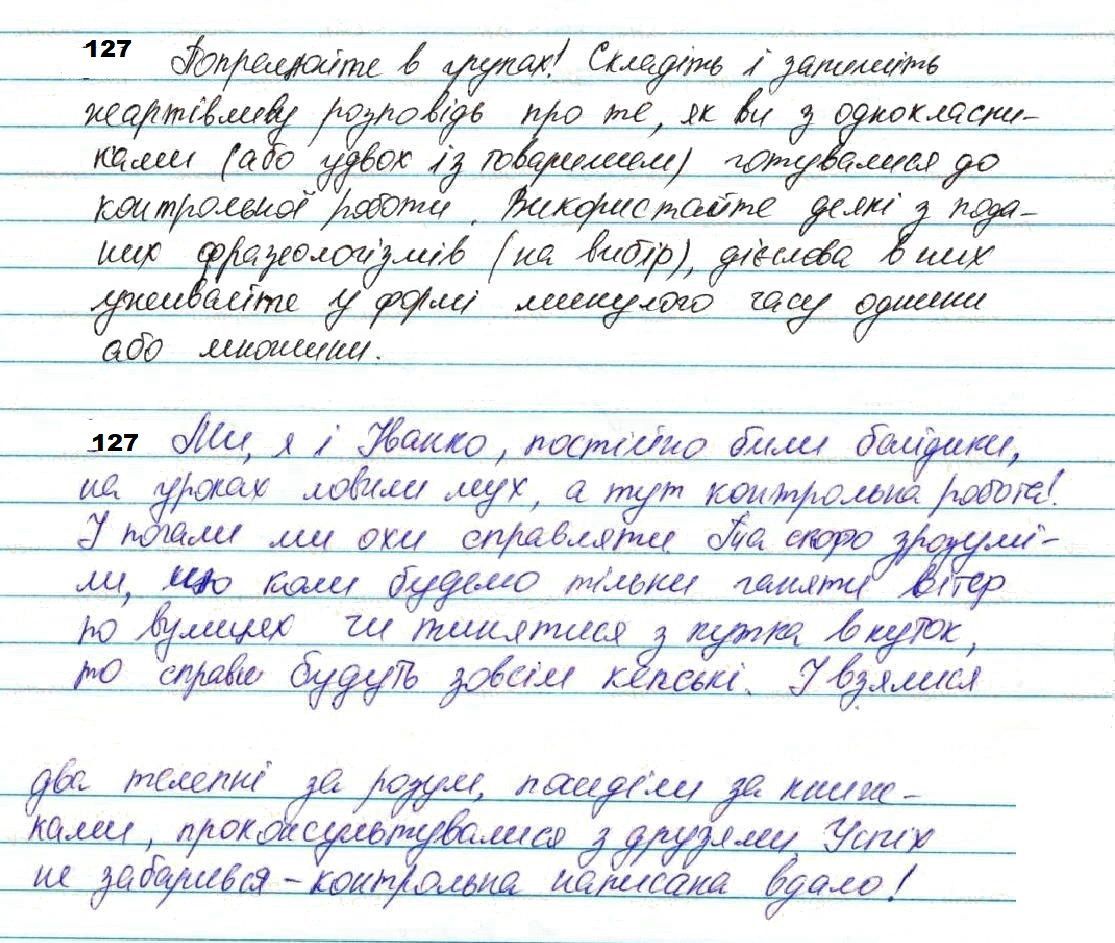 127 Попрацюйте в групах! Складіть і запишіть
жартівливу розповідь про те, як ви з однокласни-
ками (або удвох із товаришем) готувалися до
контрольної роботи. Використайте деякі з пода-
них фразеологізмів (на вибір), дієслова в них
уживайте у формі минулого часу однини
або множини.
127 Ми, я і Іванко, постійно били байдики,
на уроках ловили мух, а тут контрольна робота!
І почали ми охи справляти. Та скоро зрозумі-
ли, що коли будемо тільки ганяти вітер
по вулицях чи тинятися з кутка в куток,
то справи будуть зовсім кепські. І взялися
два телепні за розум, посиділи за книж-
ками, проконсультувалися з друзями. Успіх
не забарився - контрольна написана вдало!